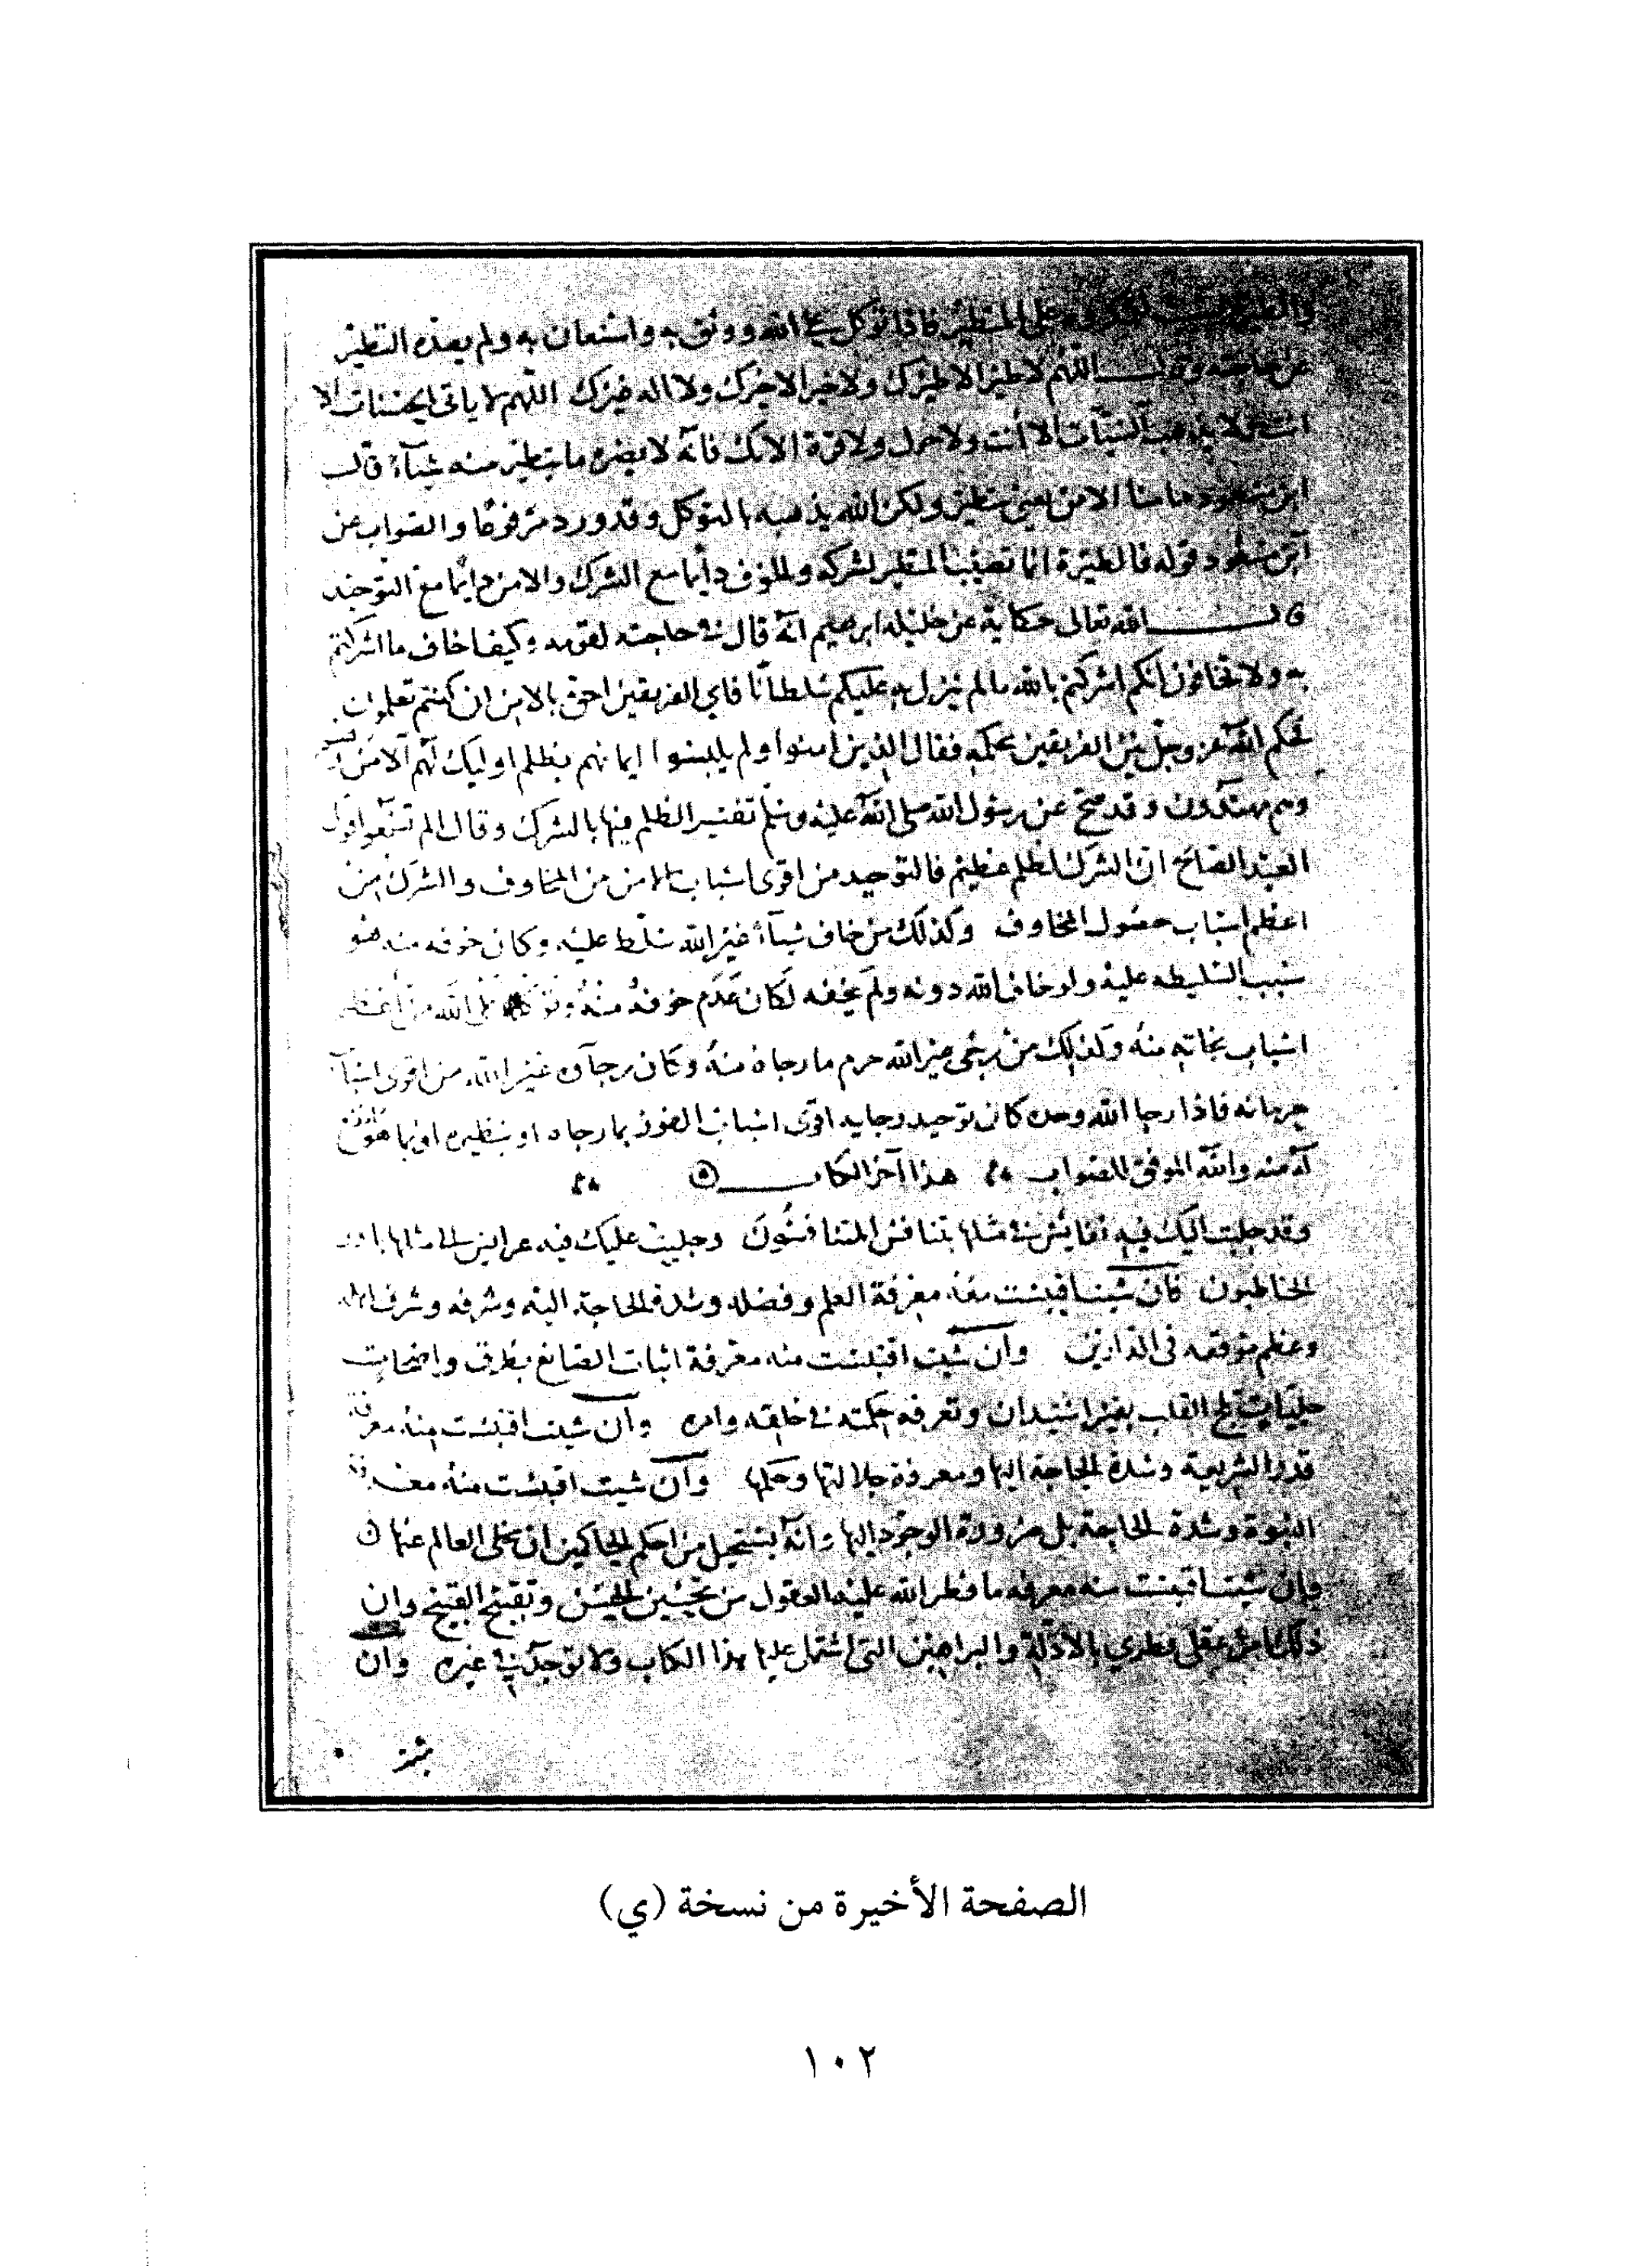 على المتطير فاذا توكل على الله ووثق به واستعان به ولم يصده التطير
عن حاجته وقال اللهم لا طير الا طيرك ولا خير الا خيرك ولا اله غيرك اللهم لا ياتي بالحسنات الا
انت ولا يذهب بالسيئات الا انت ولا حول ولا قوة الا بك فانه لا يضره ما يتطير منه شيئا قال
ابن مسعود ما منا الا من يعني يتطير ولكن الله يذهبه بالتوكل وقد ورد مرفوعا والصواب عن
ابن مسعود قوله فالطيرة انما تصيب المتطير لشركه والخوف دايما مع الشرك والامن دايما مع التوحيد
قال الله تعالى حكاية عن خليله ابرهيم انه قال في محاجته لقومه وكيف اخاف ما اشركتم
به ولا تخافون انكم اشركتم بالله ما لم ينزل به عليكم سلطانا فاي الفريقين احق بالامن ان كنتم تعلمون
فحكم الله عز وجل بين الفريقين بحكمه فقال الذين امنوا ولم يلبسوا ايمانهم بظلم اوليك لهم الامن
وهم مهتدون وقد صح عن رسول الله صلى الله عليه وسلم تفسير الظلم فيها بالشرك وقال الم تسمعوا قول
العبد الصالح ان الشرك لظلم عظيم فالتوحيد من اقوى اسباب الامن من المخاوف والشرك من
اعظم اسباب حصول المخاوف وكذلك من خاف شيئا غير الله سلط عليه وكان خوفه منه هو
سبب تسليطه عليه ولو خاف الله دونه ولم يخفه لكان عدم خوفه منه وتوكله على الله من اعظم
اسباب نجاته منه وكذلك من رجى غير الله حرم ما رجاه منه وكان رجاؤه غير الله من اقوى اسباب
حرمانه فاذا رجا الله وحده كان توحيد رجايه اقوى اسباب الفوز بما رجاه او بنظيره او بما هو انفع
له منه والله الموفق للصواب هذا آخر الكتاب
وقد جلبت اليك فيه نفايس في مثلها يتنافس المتنافسون وجليت عليك فيه عرايس الى مثلها بادر
الخاطبون فان شيت اقتبست منه معرفة العلم وفضله وشدة الحاجة اليه وشرفه وشرف اهله
وعظم موقعه في الدارين وان شيت اقتبست منه معرفة اثبات الصانع بطرق واضحات
جليات تلج القلب بغير استيذان ومعرفة حكمته في خلقه وامره وان شيت اقتبست منه معرفة
قدر الشريعة وشدة الحاجة اليها ومعرفة جلالتها وحكمها وان شيت اقتبست منه معرفة
النبوة وشدة الحاجة بل ضرورة الوجود اليها وانه يستحيل من احكم الحاكمين ان يخلي العالم عنها
وان شيت اقتبست منه معرفة ما فطر الله عليه العقول من تحسين الحسن وتقبيح القبيح وان
ذلك امر عقلي فطري بالادلة والبراهين التي اشتمل عليها هذا الكتاب ولا توجد في غيره وان
شيت
الصفحة الأخيرة من نسخة (ي)
١٠٢